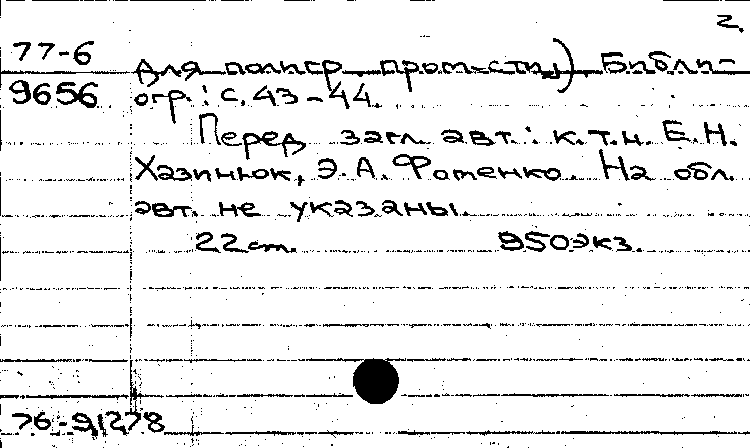 2.
77-6
9656
для полигр. пром-сти). Библи-
огр.: с. 43-44.
Перед загл. авт.: к.т.н. Е.Н.
Хазинюк, Э.А. Фатенко. На обл.
авт. не указаны.
22 см. 950 экз.
76-91278